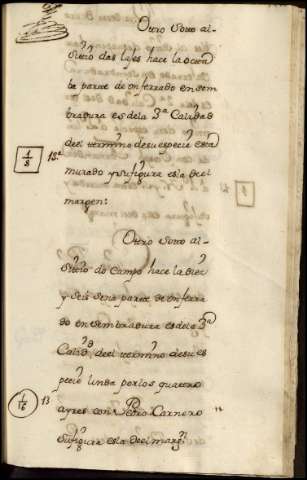 Otro Soto al-
Sitio das lajes hace la octa-
ba parte de un ferrado en sem
bradura es dela 3ª Calidad
del termino desu especie esta
1/8 13ª murado y su figura esla del
margen:
Otro Soto al-
Sitio do Campo hace la diez
y seis seno parte de un ferra
do en sembradura es dela 3ª
Calidd del termino desu es
pecie linda por los quatro
1/16 13 ayres con Pedro Carnero
su figura esla del margn